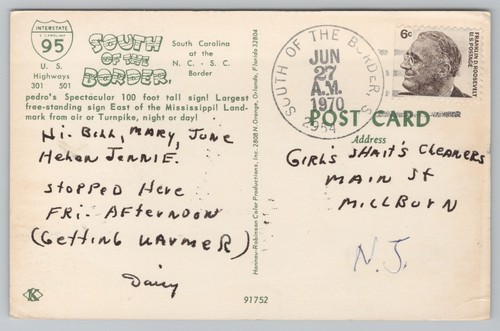 INTERSTATE
S. CAROLINA
95
U. S.
Highways
301 501
SOUTH
OF THE
BORDER,
South Carolina
at the
N. C. - S. C.
Border
pedro's Spectacular 100 foot tall sign! Largest
free-standing sign East of the Mississippi! Land-
mark from air or Turnpike, night or day!
Hi- Bill, MARY, JUNE
Helen JENNIE.
STOPPED Here
FRI- AFTERNOON
(GETTING WARMER)
Daisy
K
Hannau-Robinson Color Productions, Inc. 2808 N. Orange, Orlando, Florida 32804
91752
SOUTH OF THE BORDER S
JUN
27
A.M.
1970
2954
6c
FRANKLIN D. ROOSEVELT
U.S. POSTAGE
POST CARD
Address
GIRL'S CLEANERS
MAIN St
MILLBURN
N.J.